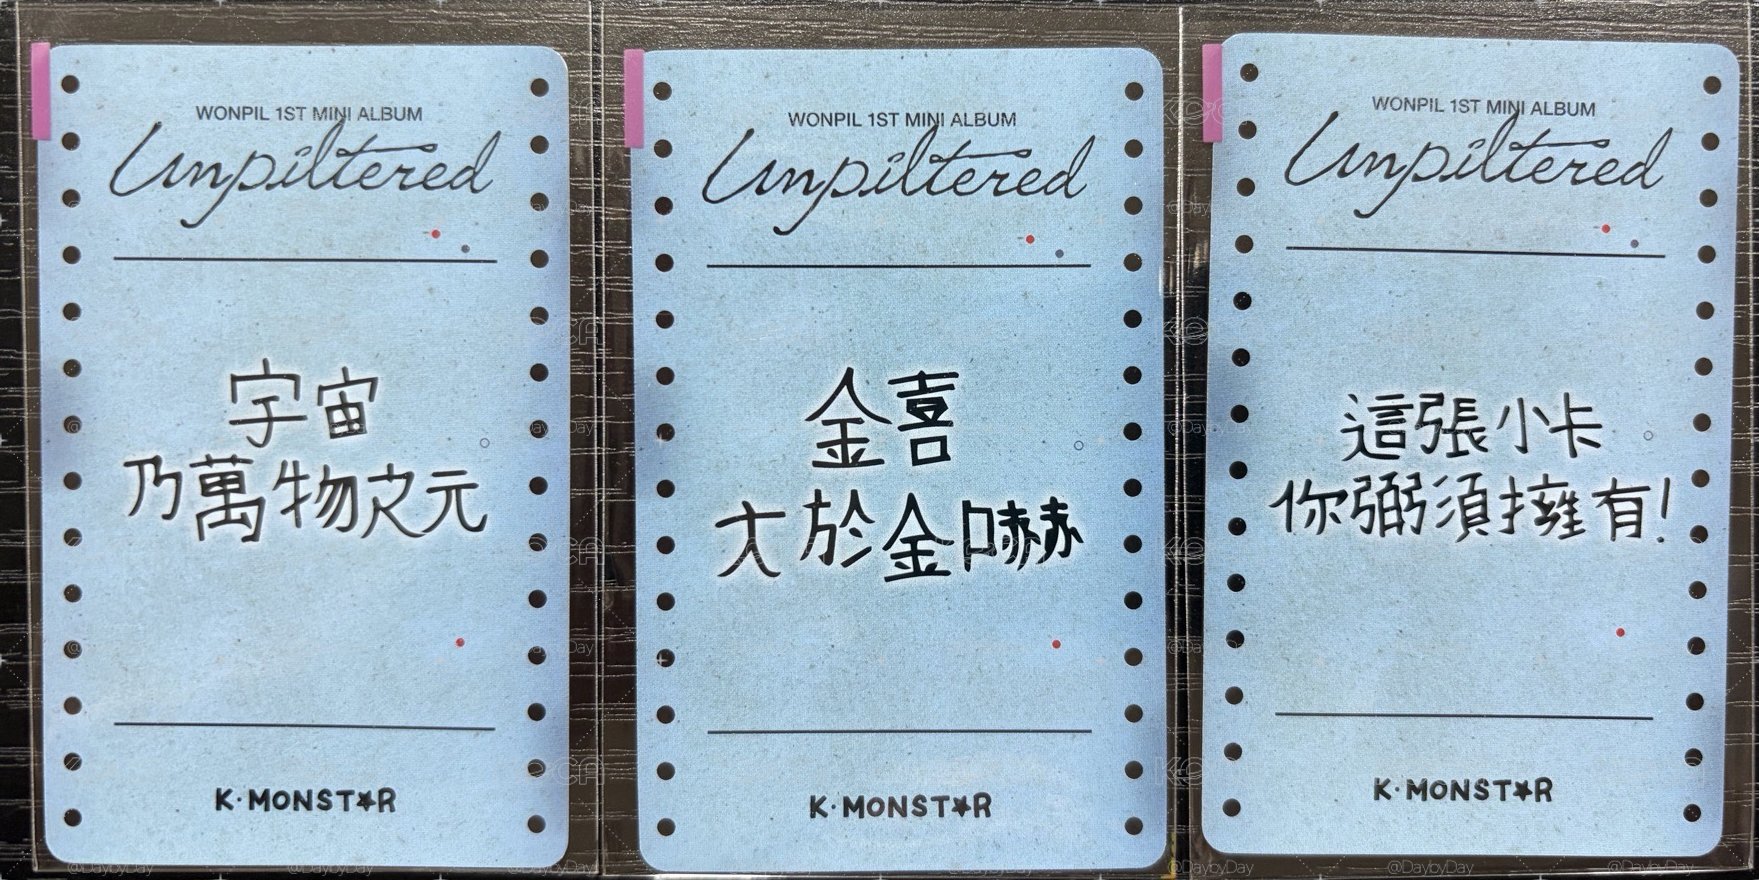 WONPIL 1ST MINI ALBUM
Unpiltered
宇宙
乃萬物次元
K·MONST★R
WONPIL 1ST MINI ALBUM
Unpiltered
金喜
大於金嚇
K·MONST★R
WONPIL 1ST MINI ALBUM
Unpiltered
這張小卡
你弼須擁有!
K·MONST★R
@DaybyDay
@DaybyDay
@DaybyDay
@DaybyDay
@DaybyDay
@DaybyDay